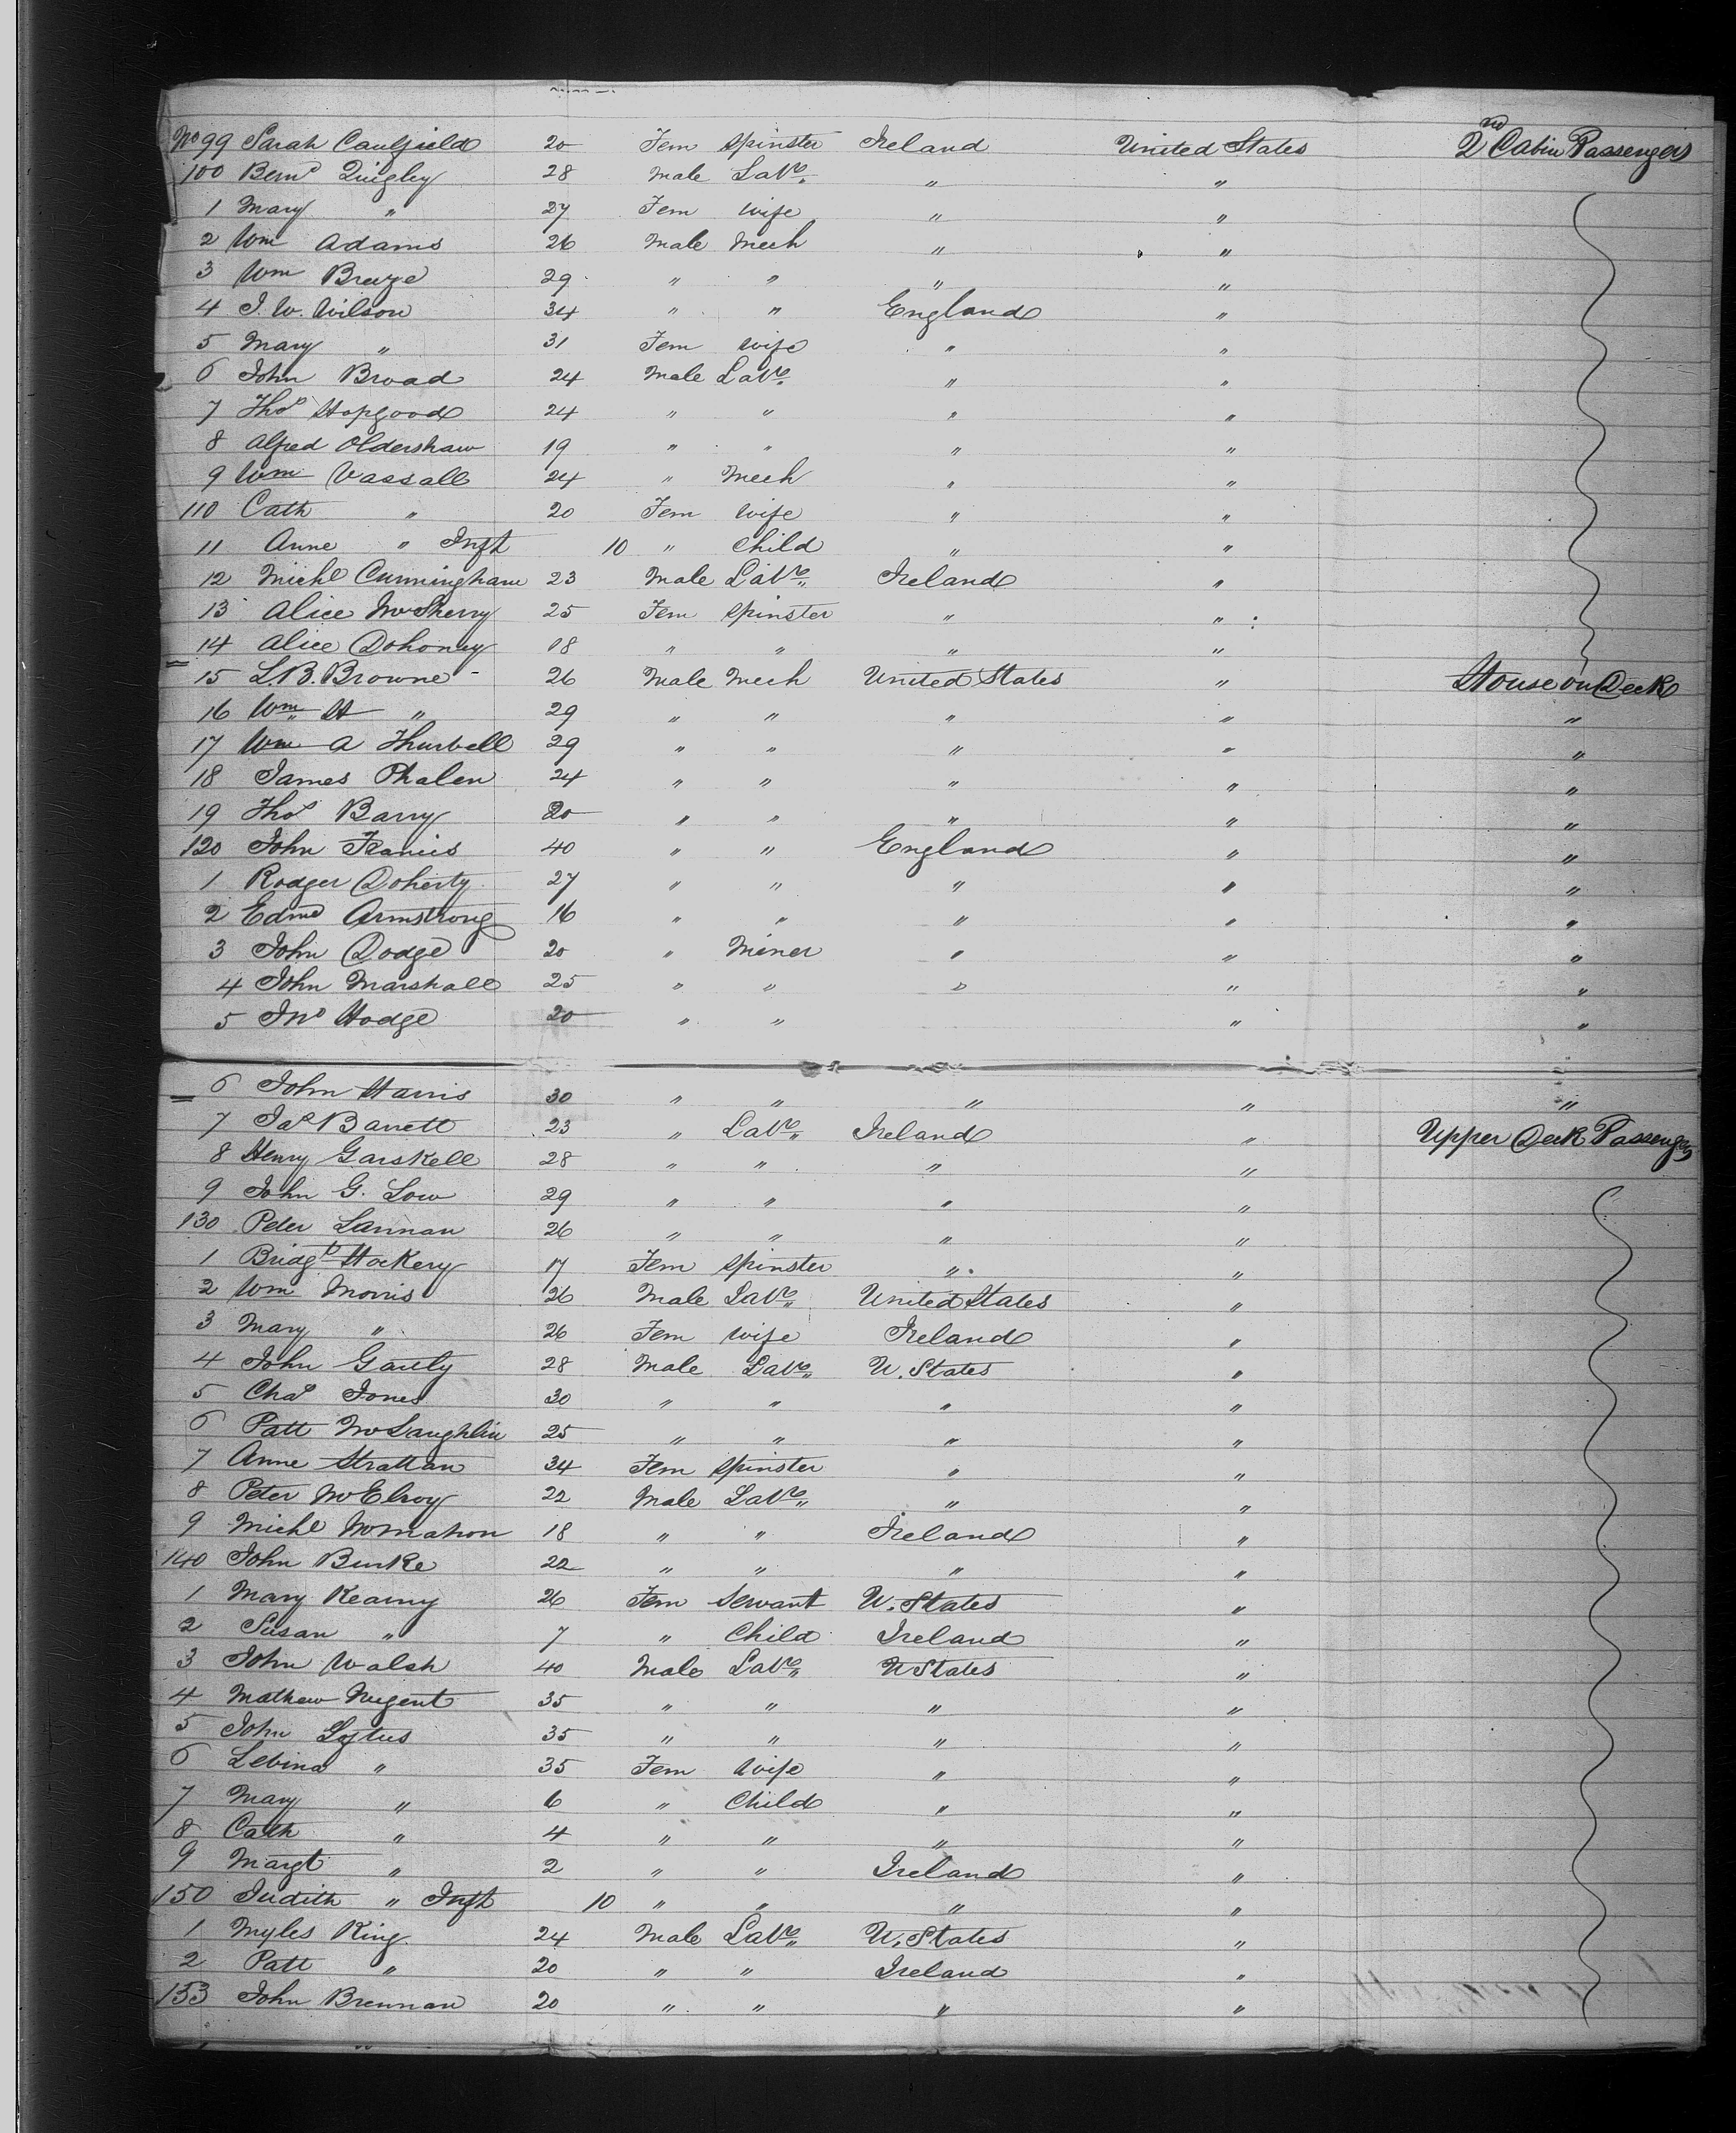 No 99 Sarah Caulfield 20 Fem Spinster Ireland United States 2nd Cabin Passengers
100 Bernd Quigley 28 Male Labr " "
1 Mary " 27 Fem Wife " "
2 Wm Adams 26 Male Mech " "
3 Wm Breeze 29 " " " "
4 J. W. Wilson 34 " " England "
5 Mary " 31 Fem Wife " "
6 John Broad 24 Male Labr " "
7 Thos Hopgood 24 " " " "
8 Alfred Oldershaw 19 " " " "
9 Wm Vassall 24 " Mech " "
110 Cath " 20 Fem Wife " "
11 Anne " Inft 10 " Child " "
12 Michl Cunningham 23 Male Labr Ireland "
13 Alice McSherry 25 Fem Spinster " "
14 Alice Dohoney 18 " " " "
15 L. B. Browne 26 Male Mech United States " House on Deck
16 Wm H " 29 " " " " "
17 Wm A Thurbell 29 " " " " "
18 James Phalen 24 " " " " "
19 Thos Barry 20 " " " " "
120 John Francis 40 " " England " "
1 Rodger Doherty 27 " " " " "
2 Edmd Armstrong 16 " " " " "
3 John Dodge 20 " Miner " " "
4 John Marshall 25 " " " " "
5 Jno Hodge 20 " " " "
6 John Harris 30 " " " " "
7 Jas Barrett 23 " Labr Ireland " Upper Deck Passengers
8 Henry Garskell 28 " " " "
9 John G. Low 29 " " " "
130 Peter Lannan 26 " " " "
1 Bridgt Hockery 17 Fem Spinster " "
2 Wm Morris 26 Male Labr United States "
3 Mary " 26 Fem Wife Ireland "
4 John Gauly 28 Male Labr U. States "
5 Chas Jones 30 " " " "
6 Patt McLaughlin 25 " " " "
7 Anne Strattan 34 Fem Spinster " "
8 Peter McElroy 22 Male Labr " "
9 Michl McMahon 18 " " Ireland "
140 John Burke 22 " " " "
1 Mary Kearny 26 Fem Servant U. States "
2 Susan " 7 " Child Ireland "
3 John Walsh 40 Male Labr U States "
4 Mathew Nugent 35 " " " "
5 John Loftus 35 " " " "
6 Lebina " 35 Fem Wife " "
7 Mary " 6 " Child " "
8 Cath " 4 " " " "
9 Margt " 2 " " Ireland "
150 Judith " Inft 10 " " " "
1 Myles King 24 Male Labr U. States "
2 Patt " 20 " " Ireland "
153 John Brennan 20 " " " "